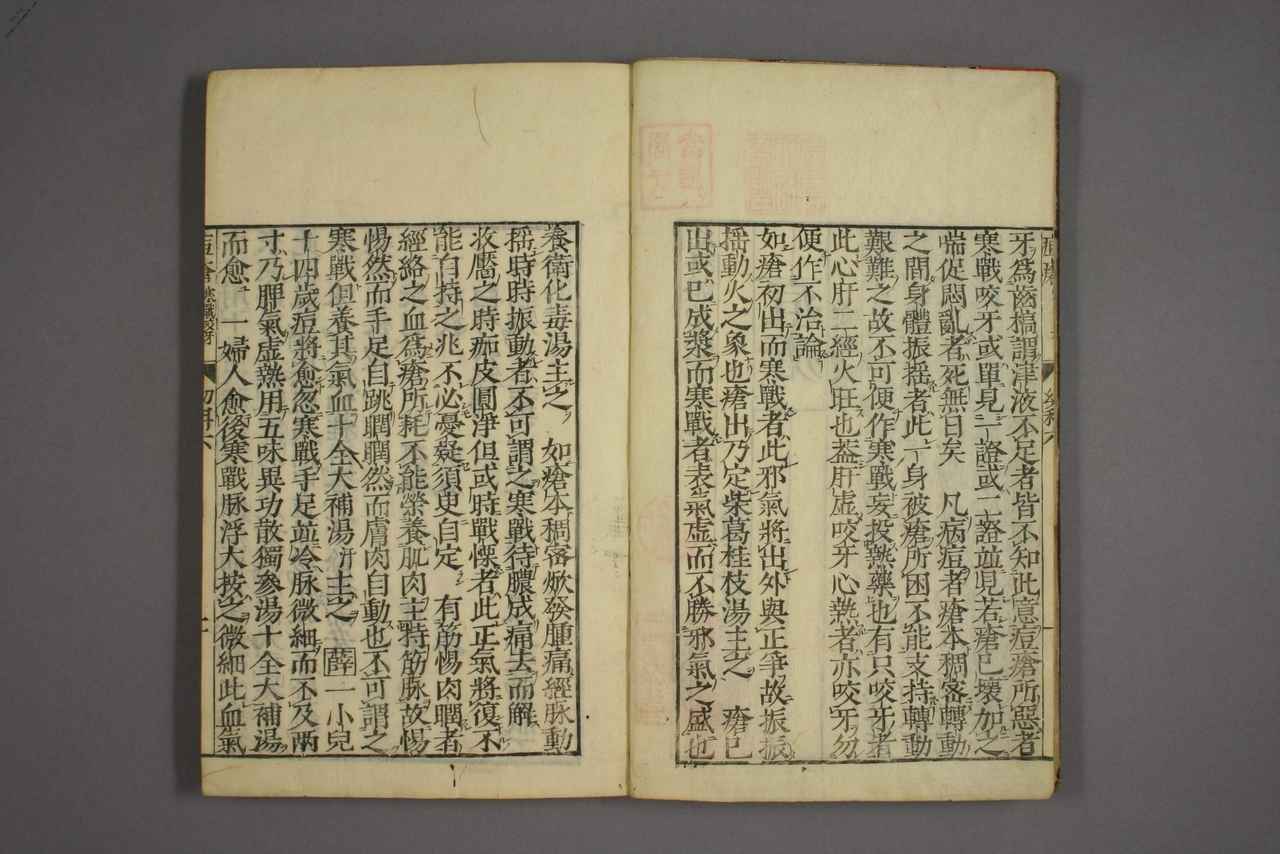 牙爲齒槁謂津液不足者皆不知此意痘瘡所惡者
寒戰咬牙或單見一證或二證並見若瘡已壞加之
喘促悶亂者死無日矣　凡病痘者瘡本稠密轉動
之間身體振搖者此一身被瘡所困不能支持轉動
艱難之故不可便作寒戰妄投熱藥也有只咬牙者
此心肝二經火旺也蓋肝虛咬牙心熱者亦咬牙勿
便作不治論
如瘡初出而寒戰者此邪氣將出外與正爭故振振
搖動火之象也瘡出乃定柴葛桂枝湯主之　瘡已
出或已成漿而寒戰者表氣虛而不勝邪氣之盛也
養衛化毒湯主之　如瘡本稠密焮發腫痛經脉動
搖時時振動者不可謂之寒戰待膿成痛去而解
收靨之時痂皮圓淨但或時戰慄者此正氣將復不
能自持之兆不必憂疑須臾自定　有筋惕肉瞤者
經絡之血爲瘡所耗不能榮養肌肉主持筋脉故惕
惕然而手足自跳瞤瞤然而膚肉自動也不可謂之
寒戰但養其氣血十全大補湯主之　薛一小兒
十四歲痘將愈忽寒戰手足並冷脉微細而不及兩
寸乃脾氣虛熱用五味異功散獨參湯十全大補湯
而愈　一婦人愈後寒戰脉浮大按之微細此血氣
幼科六